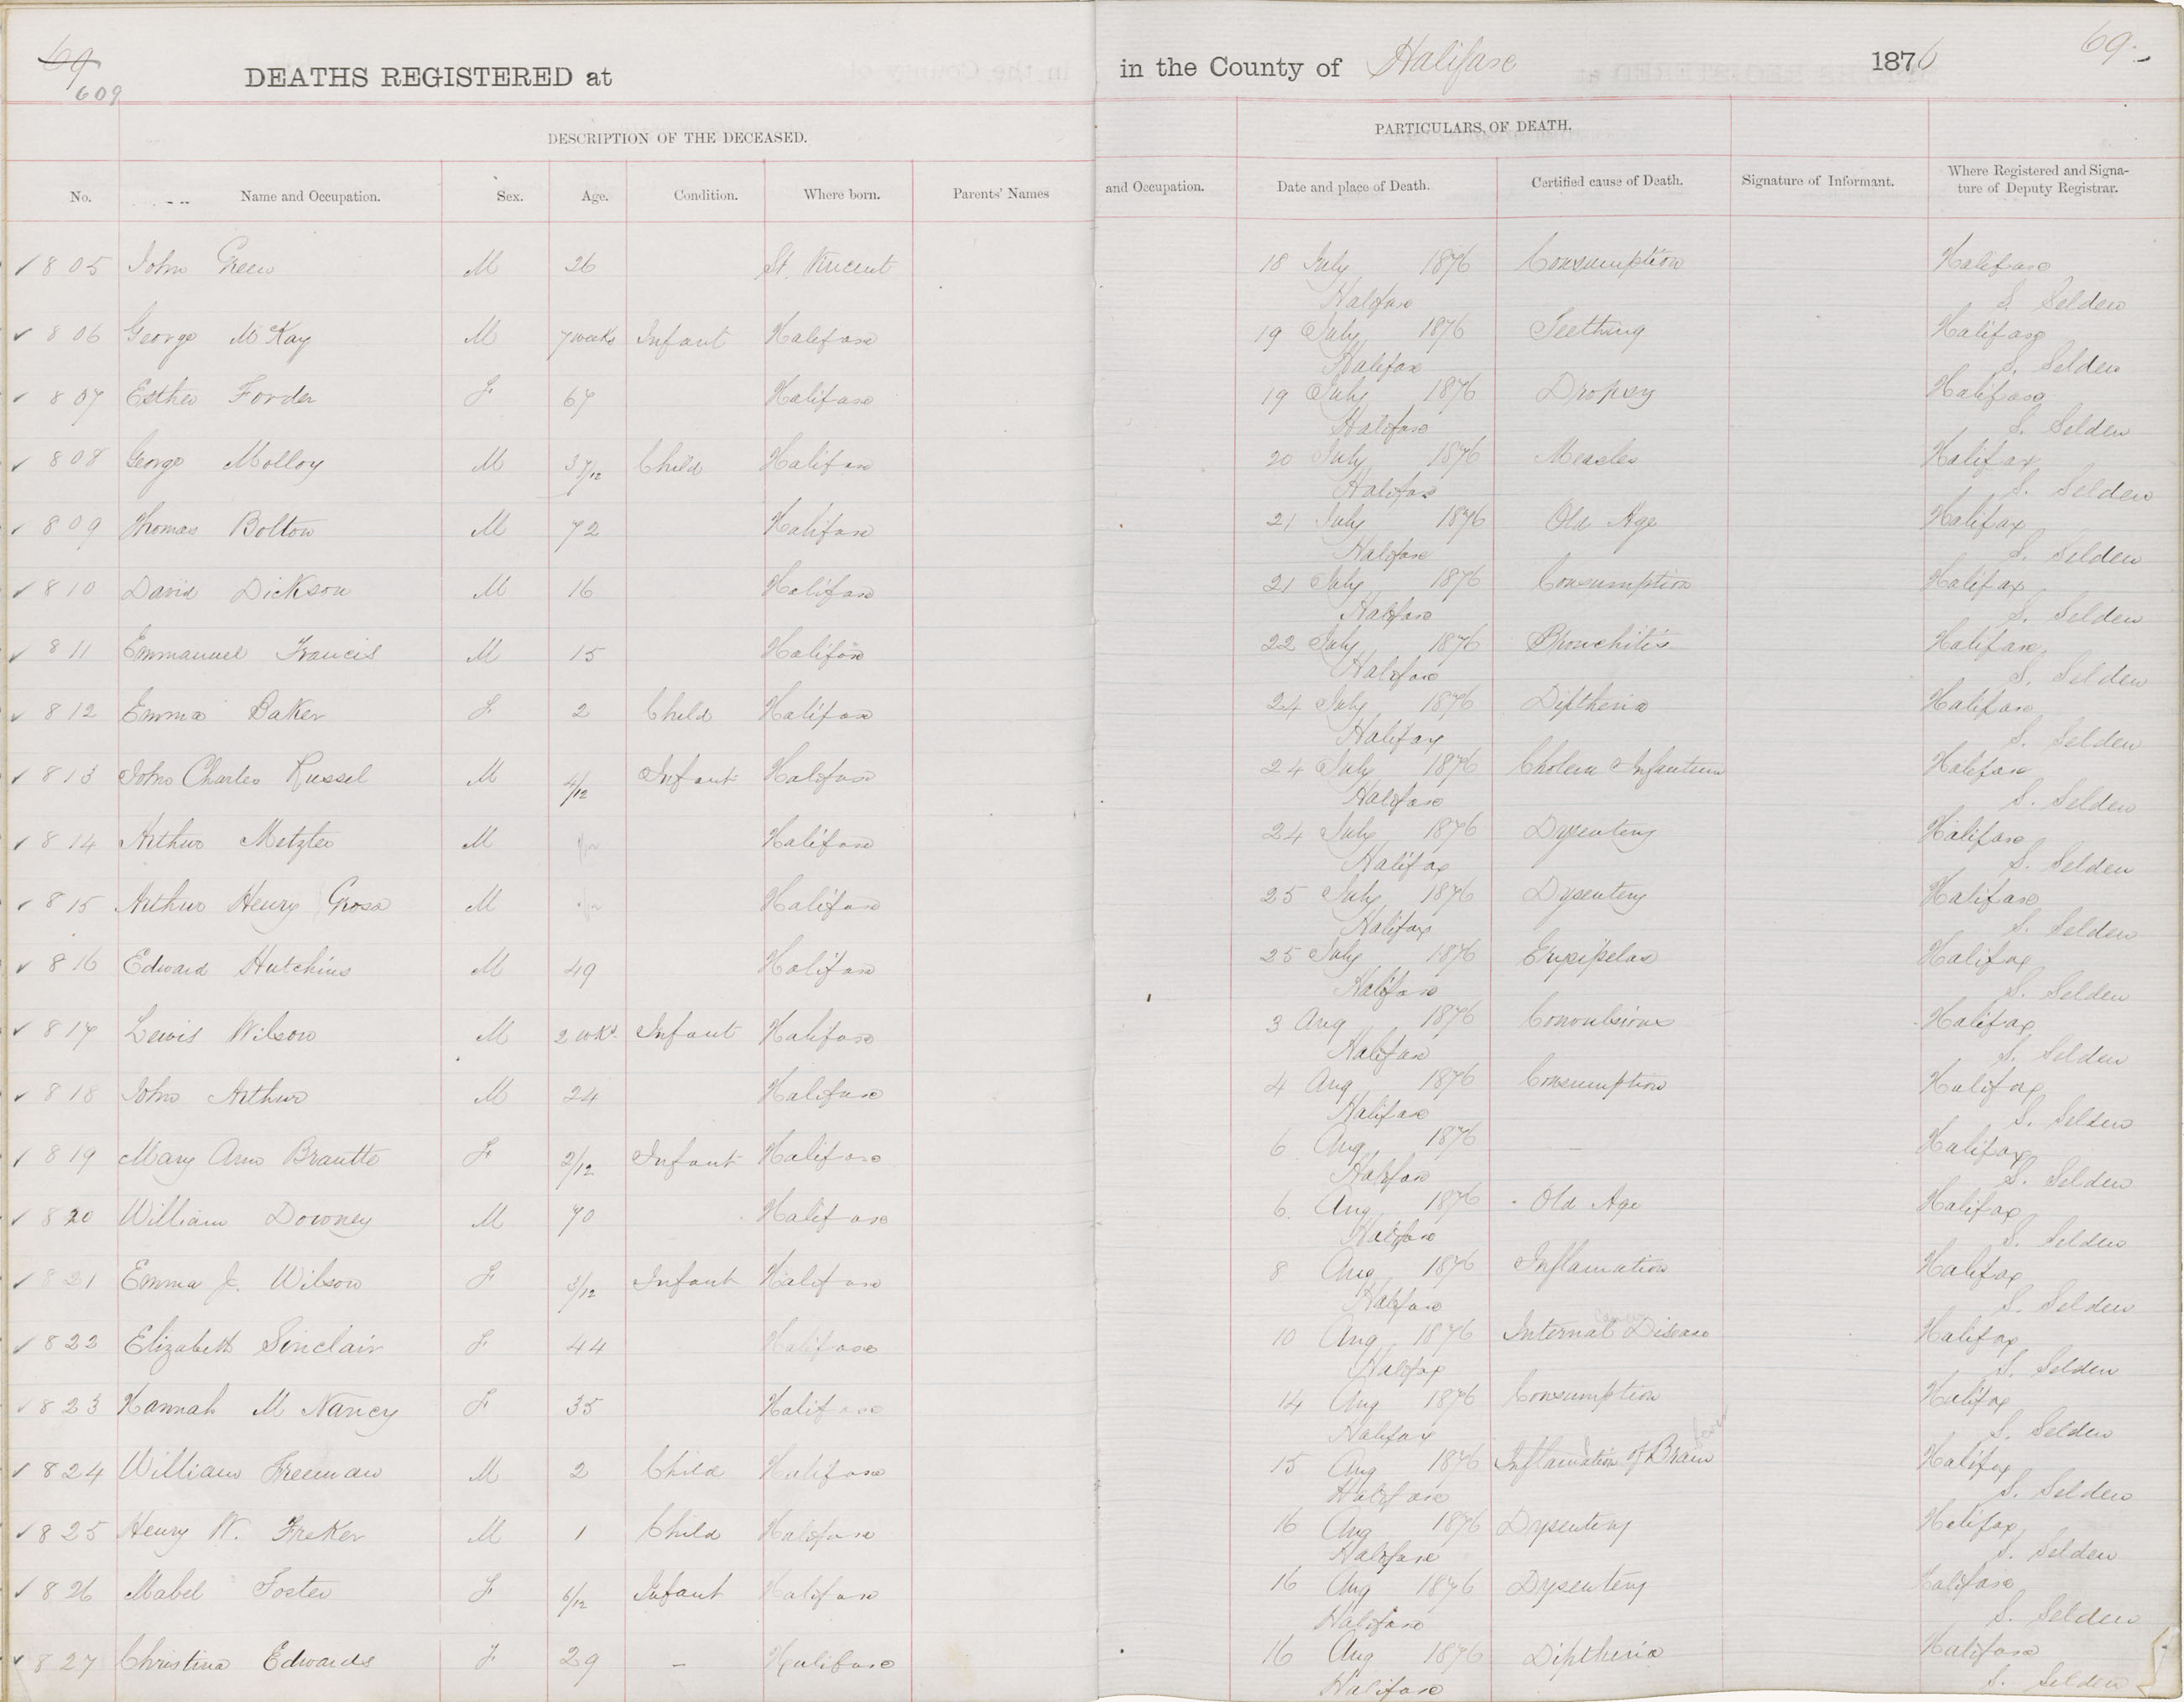 69
609
DEATHS REGISTERED at in the County of Halifax 1876 69.
DESCRIPTION OF THE DECEASED. PARTICULARS OF DEATH.
No. Name and Occupation. Sex. Age. Condition. Where born. Parents' Names and Occupation. Date and place of Death. Certified cause of Death. Signature of Informant. Where Registered and Signa-
ture of Deputy Registrar.
805 John Green M 26 St. Vincent 18 July 1876 Consumption Halifax
Halifax S. Selden
806 George McKay M 7 weeks Infant Halifax 19 July 1876 Teething Halifax
Halifax S. Selden
807 Esther Forder F 67 Halifax 19 July 1876 Dropsy Halifax
Halifax S. Selden
808 George Molloy M 3 7/12 Child Halifax 20 July 1876 Measles Halifax
Halifax S. Selden
809 Thomas Bolton M 72 Halifax 21 July 1876 Old Age Halifax
Halifax S. Selden
810 David Dickson M 16 Halifax 21 July 1876 Consumption Halifax
Halifax S. Selden
811 Emmanuel Francis M 15 Halifax 22 July 1876 Bhonchitis Halifax
Halifax S. Selden
812 Emma Baker F 2 Child Halifax 24 July 1876 Diftheria Halifax
Halifax S. Selden
813 John Charles Russel M 4/12 Infant Halifax 24 July 1876 Cholera Infantum Halifax
Halifax S. Selden
814 Arthur Metzler M Halifax 24 July 1876 Dysentery Halifax
Halifax S. Selden
815 Arthur Henry Gross M Halifax 25 July 1876 Dysentery Halifax
Halifax S. Selden
816 Edward Hutchins M 49 Halifax 25 July 1876 Erysipelas Halifax
Halifax S. Selden
817 Lewis Wilson M 2 wks. Infant Halifax 3 Aug 1876 Convulsions Halifax
Halifax S. Selden
818 John Arthur M 24 Halifax 4 Aug 1876 Consumption Halifax
Halifax S. Selden
819 Mary Ann F 2/12 Infant Halifax 6 Aug 1876 Halifax
Halifax S. Selden
820 William Downey M 70 Halifax 6. Aug 1876 Old Age Halifax
Halifax S. Selden
821 Emma J. Wilson F 3/12 Infant Halifax 8 Aug 1876 Inflamation Halifax
Halifax S. Selden
822 Elizabeth Sinclair F 44 Halifax 10 Aug 1876 Internal Disease Halifax
Halifax S. Selden
823 Hannah M Nancy F 35 Halifax 14 Aug 1876 Consumption Halifax
Halifax S. Selden
824 William Freeman M 2 Child Halifax 15 Aug 1876 Inflamation of Brain Halifax
Halifax S. Selden
825 Henry W. Freker M 1 Child Halifax 16 Aug 1876 Dysentery Halifax
Halifax S. Selden
826 Mabel Foster F 6/12 Infant Halifax 16 Aug 1876 Dysentery Halifax
Halifax S. Selden
827 Christina Edwards F 29 – Halifax 16 Aug 1876 Diptheria Halifax
Halifax S. Selden